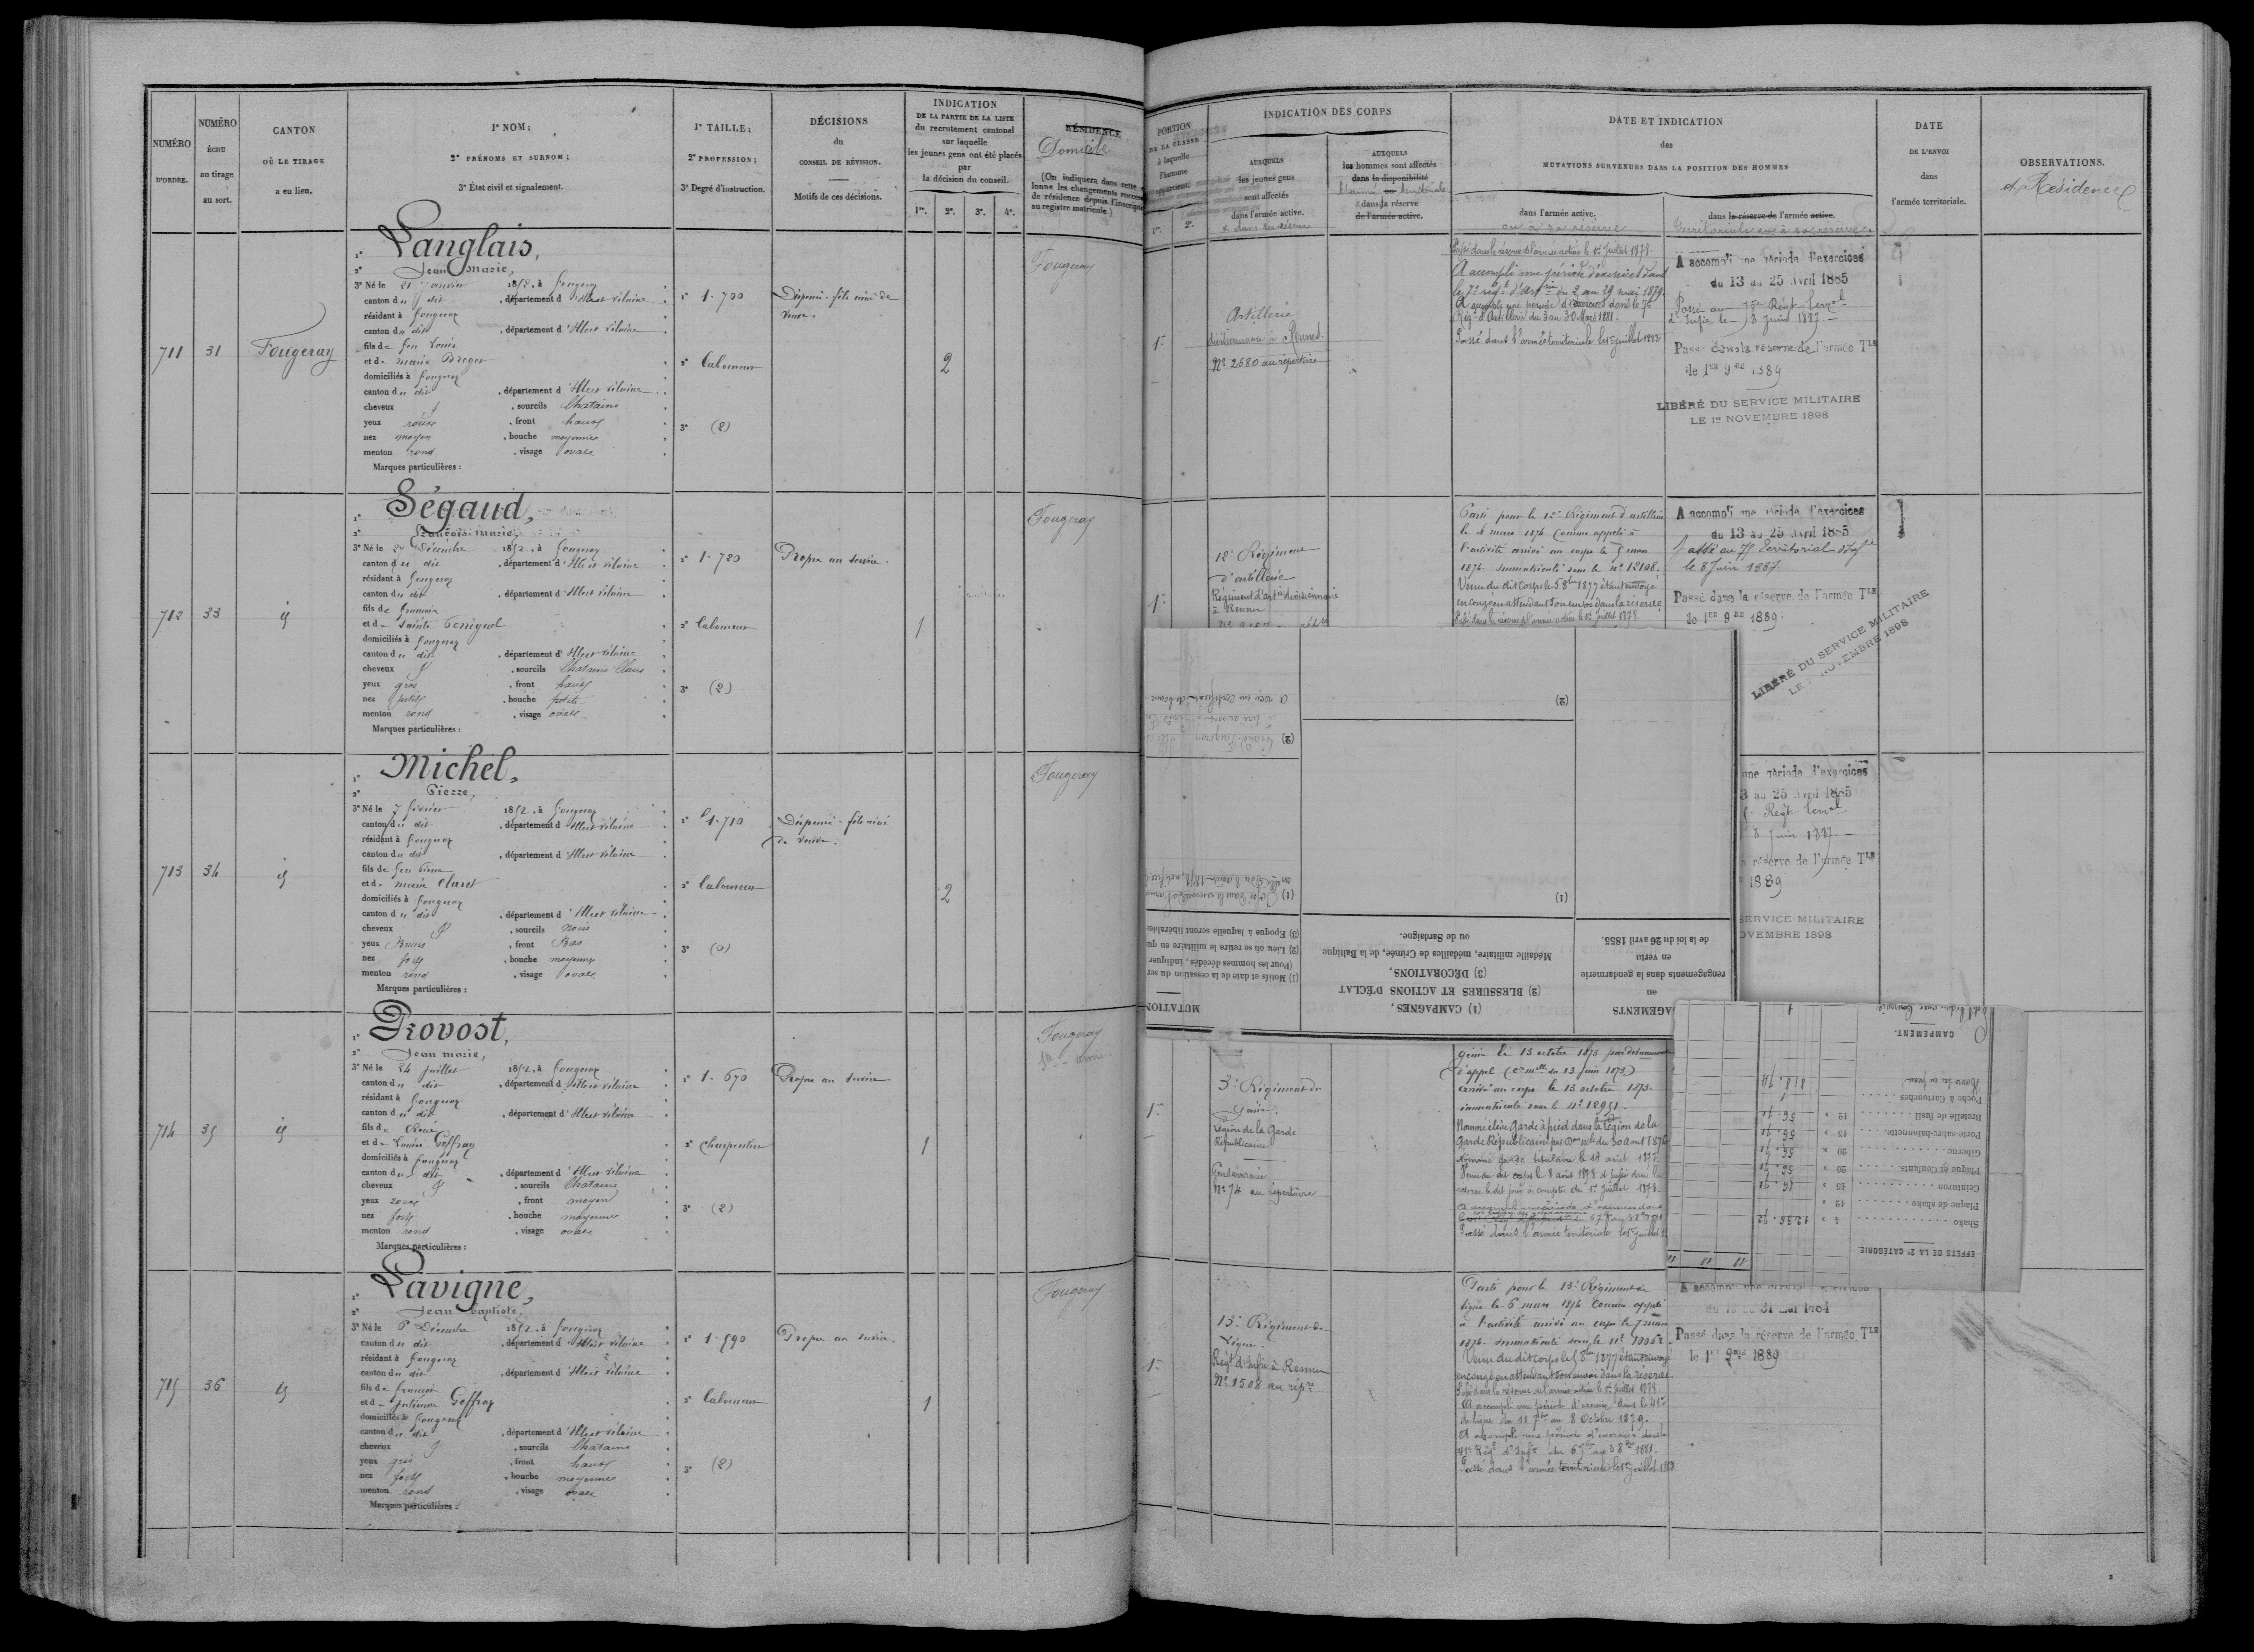 NUMÉRO
D'ORDRE.
NUMÉRO
ÉCHU
au tirage
au sort.
CANTON
OÙ LE TIRAGE
a eu lieu.
1° NOM;
2° PRÉNOMS ET SURNOM;
3° État civil et signalement.
1° TAILLE;
2° PROFESSION;
3° Degré d'instruction.
DÉCISIONS
du
CONSEIL DE RÉVISION.
Motifs de ces décisions.
INDICATION
DE LA PARTIE DE LA LISTE
du recrutement cantonal
sur laquelle
les jeunes gens ont été placés
par
la décision du conseil.
1re. 2e. 3e. 4e.
RÉSIDENCE
Domicile
(On indiquera dans cette
lonne les changements
de résidence depuis l'inscription
au registre matricule)
711
31
Fougeray
1° Langlais,
2° Jean Marie,
3° Né le 21 Janvier 1852, à Fougeray
canton du dit, département d'Ille et Vilaine
résidant à Fougeray
canton du dit, département d'Ille et Vilaine
fils de feu Louis
et de Marie
domiciliés à Fougeray
canton du dit, département d'Ille et Vilaine
cheveux, sourcils Chatains
yeux roux, front haut
nez moyen, bouche moyenne
menton rond, visage ovale
Marques particulières :
1° 1.700
2° Laboureur
3° (2)
Dispensé. fils ainé de
veuve.
2
Fougeray
712
33
id
1° Ségaud,
2° François Marie
3° Né le 27 Décembre 1852, à Fougeray
canton du dit, département d'Ille et Vilaine
résidant à Fougeray
canton du dit, département d'Ille et Vilaine
fils de François
et de Sainte
domiciliés à Fougeray
canton du dit, département d'Ille et Vilaine
cheveux, sourcils Chatains Clairs
yeux gris, front haut
nez petit, bouche petite
menton rond, visage ovale
Marques particulières :
1° 1.720
2° Laboureur
3° (2)
Propre au service.
1
Fougeray
713
34
id
1° Michel,
2° Pierre,
3° Né le 7 février 1852, à Fougeray
canton du dit, département d'Ille et Vilaine
résidant à Fougeray
canton du dit, département d'Ille et Vilaine
fils de feu Pierre
et de Marie Claret
domiciliés à Fougeray
canton du dit, département d'Ille et Vilaine
cheveux, sourcils Noirs
yeux Bruns, front Bas
nez fort, bouche moyenne
menton rond, visage ovale
Marques particulières :
1° 1.710
2° Laboureur
3° (0)
Dispensé. fils ainé
de veuve.
2
Fougeray
714
35
id
1° Provost,
2° Jean Marie,
3° Né le 24 Juillet 1852, à Fougeray
canton du dit, département d'Ille et Vilaine
résidant à Fougeray
canton du dit, département d'Ille et Vilaine
fils de René
et de Louise Geffray
domiciliés à Fougeray
canton du dit, département d'Ille et Vilaine
cheveux, sourcils Chatains
yeux roux, front moyen
nez fort, bouche moyenne
menton rond, visage ovale
Marques particulières :
1° 1.670
2° Charpentier
3° (2)
Propre au service
1
Fougeray
715
36
id
1° Lavigne,
2° Jean Baptiste,
3° Né le Décembre 1852, à Fougeray
canton du dit, département d'Ille et Vilaine
résidant à Fougeray
canton du dit, département d'Ille et Vilaine
fils de François
et de Julienne Geffray
domiciliés à Fougeray
canton du dit, département d'Ille et Vilaine
cheveux, sourcils Chatains
yeux gris, front haut
nez fort, bouche moyenne
menton rond, visage ovale
Marques particulières :
1° 1.590
2° Laboureur
3° (2)
Propre au service.
1
Fougeray
PORTION
DE LA CLASSE
à laquelle
l'homme
appartient.
1re. 2e.
INDICATION DES CORPS
AUXQUELS
les jeunes gens
sont affectés
dans l'armée active.
& dans sa réserve
AUXQUELS
les hommes sont affectés
dans la disponibilité
l'armée ou territoriale
dans la réserve
de l'armée active.
DATE ET INDICATION
des
MUTATIONS SURVENUES DANS LA POSITION DES HOMMES
dans l'armée active.
ou à sa réserve
dans la réserve de l'armée active.
Territoriale ou à sa réserve
DATE
DE L'ENVOI
dans
l'armée territoriale.
OBSERVATIONS.
et Residence
1re
Artillerie
divisionnaire à Rennes
N° 2680 au répertoire
Passé dans la réserve de l'armée active le 1er Juillet 1879.
A accompli une période d'exercices dans
le 7e régt d'artrie du 2 au 29 mai 1879.
A accompli une période d'exercices dans le 7e
Régt d'Artillerie du 3 au 30 Mars 1881.
Passé dans l'armée territoriale le 1er juillet 1882
A accompli une période d'exercices
du 13 au 25 Avril 1885
Passé au 75e Régt Terral
d'Infie le 8 Juin 1887
Passé dans la réserve de l'armée Tle
le 1er 9bre 1889
LIBÉRÉ DU SERVICE MILITAIRE
LE 1er NOVEMBRE 1898
1re
12e Régiment
d'artillerie
Régiment d'artie divisionnaire
à Rennes
Parti pour le 12e Régiment d'artillerie
le 4 mars 1874 Comme appelé à
l'activité arrivé au corps le 5 mars
1874. Immatriculé sous le n° 12108.
Venu du dit Corps le 5 8bre 1877 étant envoyé
en congé en attendant son envoi dans la réserve.
Passé dans la réserve de l'armée active le 1er Juillet 1879
A accompli une période d'exercices
du 13 au 25 Avril 1885
Passé au 75e Territorial d'Infie
le 8 Juin 1887.
Passé dans la réserve de l'armée Tle
le 1er 9bre 1889.
LIBÉRÉ DU SERVICE MILITAIRE
LE 1 NOVEMBRE 1898
une période d'exercices
3 au 25 Avril 1885
Régt Terral
8 Juin 1887
réserve de l'armée Tle
1889
SERVICE MILITAIRE
OVEMBRE 1898
AGEMENTS
ou
rengagements dans la gendarmerie
en vertu
de la loi du 26 avril 1855.
(1) CAMPAGNES,
(2) BLESSURES ET ACTIONS D'ÉCLAT
(3) DÉCORATIONS,
Médaille militaire, médailles de Crimée, de la Baltique
ou de Sardaigne.
MUTATION
(1) Motifs et date de la cessation du ser
(Pour les hommes décédés, indiquer
(2) Lieu où se retire le militaire en qu
(3) Époque à laquelle seront libérables
(1)
(2)
(1)
(2)
EFFETS DE LA 2e CATÉGORIE.
Shako 4 » 1236.72
Plaque de shako 12 »
Ceinturon 15 » 56.71
Plaque et Coulants 20 » 56.71
Giberne 20 » 56.71
Porte-sabre-baïonnette 15 » 56.71
Bretelle de fusil 12 » 56.71
Poche à Cartouches 1
818.74
CAMPEMENT.
1re
3e Régiment du
Génie.
Légion de la Garde
Républicaine
Gendarmerie
N° 74 au répertoire
génie le 13 octobre 1873
d'appel (Cre mlle du 13 Juin 1873)
arrivé au corps le 13 octobre 1873.
immatriculé sous le N° 12951
Nommé élève Garde à pied dans la Légion de la
Garde Républicaine par Don mlle du 30 aout 1876
Nommé garde titulaire le 18 août 1877.
Venu du dit corps le 8 août 1878 et passé dans la
réserve le dit jour à compter du 1er Juillet 1878.
A accompli une période d'exercices dans
Passé dans l'armée territoriale le 1er Juillet
1re
15e Régiment de
Ligne.
Régt d'Infie à Rennes
N° 1508 au répre
Parti pour le 15e Régiment de
ligne le 6 mars 1874 Comme appelé
à l'activité arrivé au corps le 7 mars
1874. Immatriculé sous le N°
Venu du dit corps le 5 8bre 1877 étant envoyé
en congé en attendant son envoi dans la réserve.
Passé dans la réserve de l'armée active le 1er Juillet 1879
A accompli une période d'exercice dans le 41e
de ligne du 11 7bre au 8 Octobre 1879.
A accompli une période d'exercices dans le
41e Régt d'Infie du 6 7bre au 3 8bre 1881.
Passé dans l'armée territoriale le 1er Juillet 1883
A accompli une période d'exercices
31 Mai 1884
Passé dans la réserve de l'armée Tle
le 1er 9bre 1889